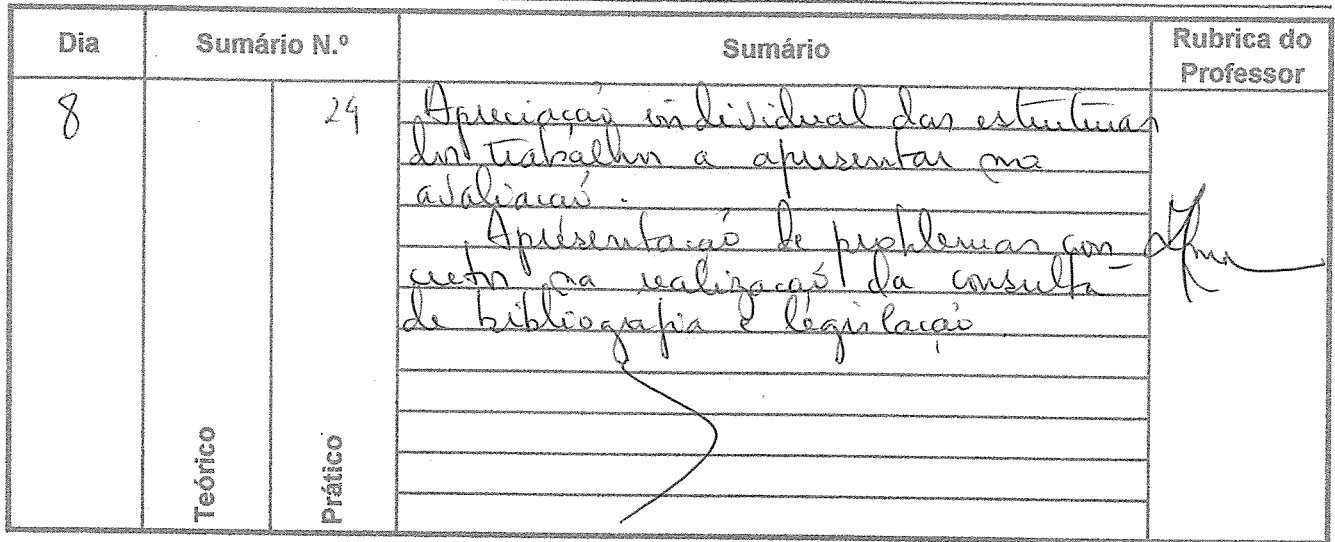 Dia Sumário N.º Sumário Rubrica do Professor
8 24 Apreciação individual das estruturas
dos trabalhos a apresentar na
avaliação.
Apresentação de problemas con
cretos na realização da consulta
de bibliografia e legislação
Teórico Prático